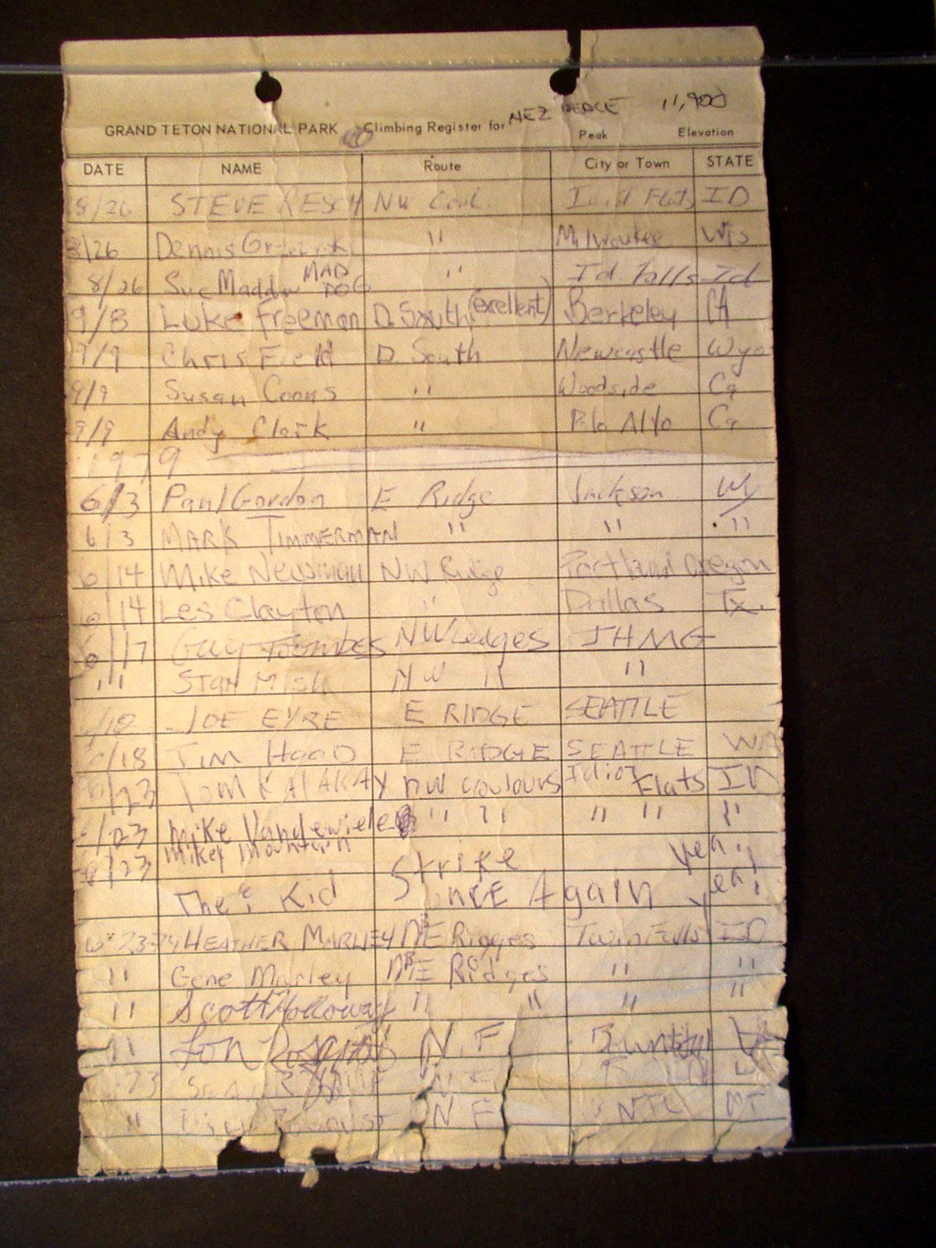 NEZ PERCE 11,900
GRAND TETON NATIONAL PARK Climbing Register for Peak Elevation
DATE NAME Route City or Town STATE
8/26 STEVE NW Coul. ID
8/26 Dennis " Milwaukee Wis
MAD
8/26 Sue Maddin DOG " Id Falls Id
9/8 Luke Freeman D. South (exellent) Berkeley CA
9/9 Chris Field D South Newcastle Wyo
9/9 Susan Coons " Woodside Ca
9/9 Andy Clark " Palo Alto Ca
1979
6/3 Paul Gordon E Ridge Jackson Wy
6/3 MARK TIMMERMAN " " "
6/14 Mike Newsman NW Ridge Portland Oregon
6/14 Les Clayton " Dallas Tx.
6/17 Guy Toombes NW Ledges JHMG
" Stan Mish NW " "
/18 JOE EYRE E RIDGE SEATTLE
6/18 TIM HOOD E RIDGE SEATTLE WA
6/23 Tom KALAKAY nw coulours Idiot Flats ID
6/23 Mike Vandewiele " " " " "
6/23 Mikey Mountain
The Kid Strike Again yea! yea!
23-24 HEATHER MARLEY NE Ridges Twin Falls ID
" Gene Marley NE Ridges " "
" Scott Holloway " " " "
" Lon N.F Bountiful
23
" N F MT